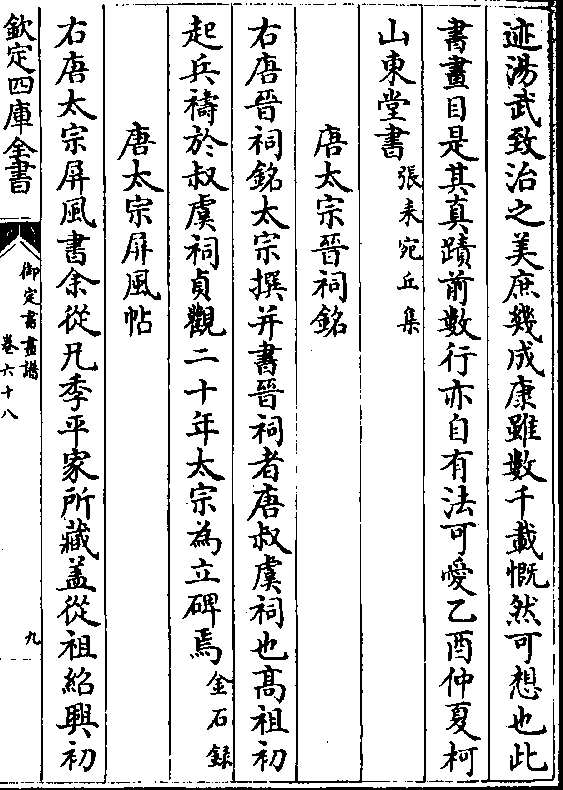 迹湯武致治之美庶幾成康雖數千載慨然可想也此
書畫目是其真蹟前數行亦自有法可愛乙酉仲夏柯
山東堂書張耒宛丘集
唐太宗晉祠銘
右唐晉祠銘太宗撰并書晉祠者唐叔虞祠也髙祖初
起兵禱於叔虞祠貞觀二十年太宗為立碑焉金石錄
唐太宗屏風帖
右唐太宗屏風書余從兄季平家所藏盖從祖紹興初
欽定四庫全書
御定書畫譜
卷六十八
九